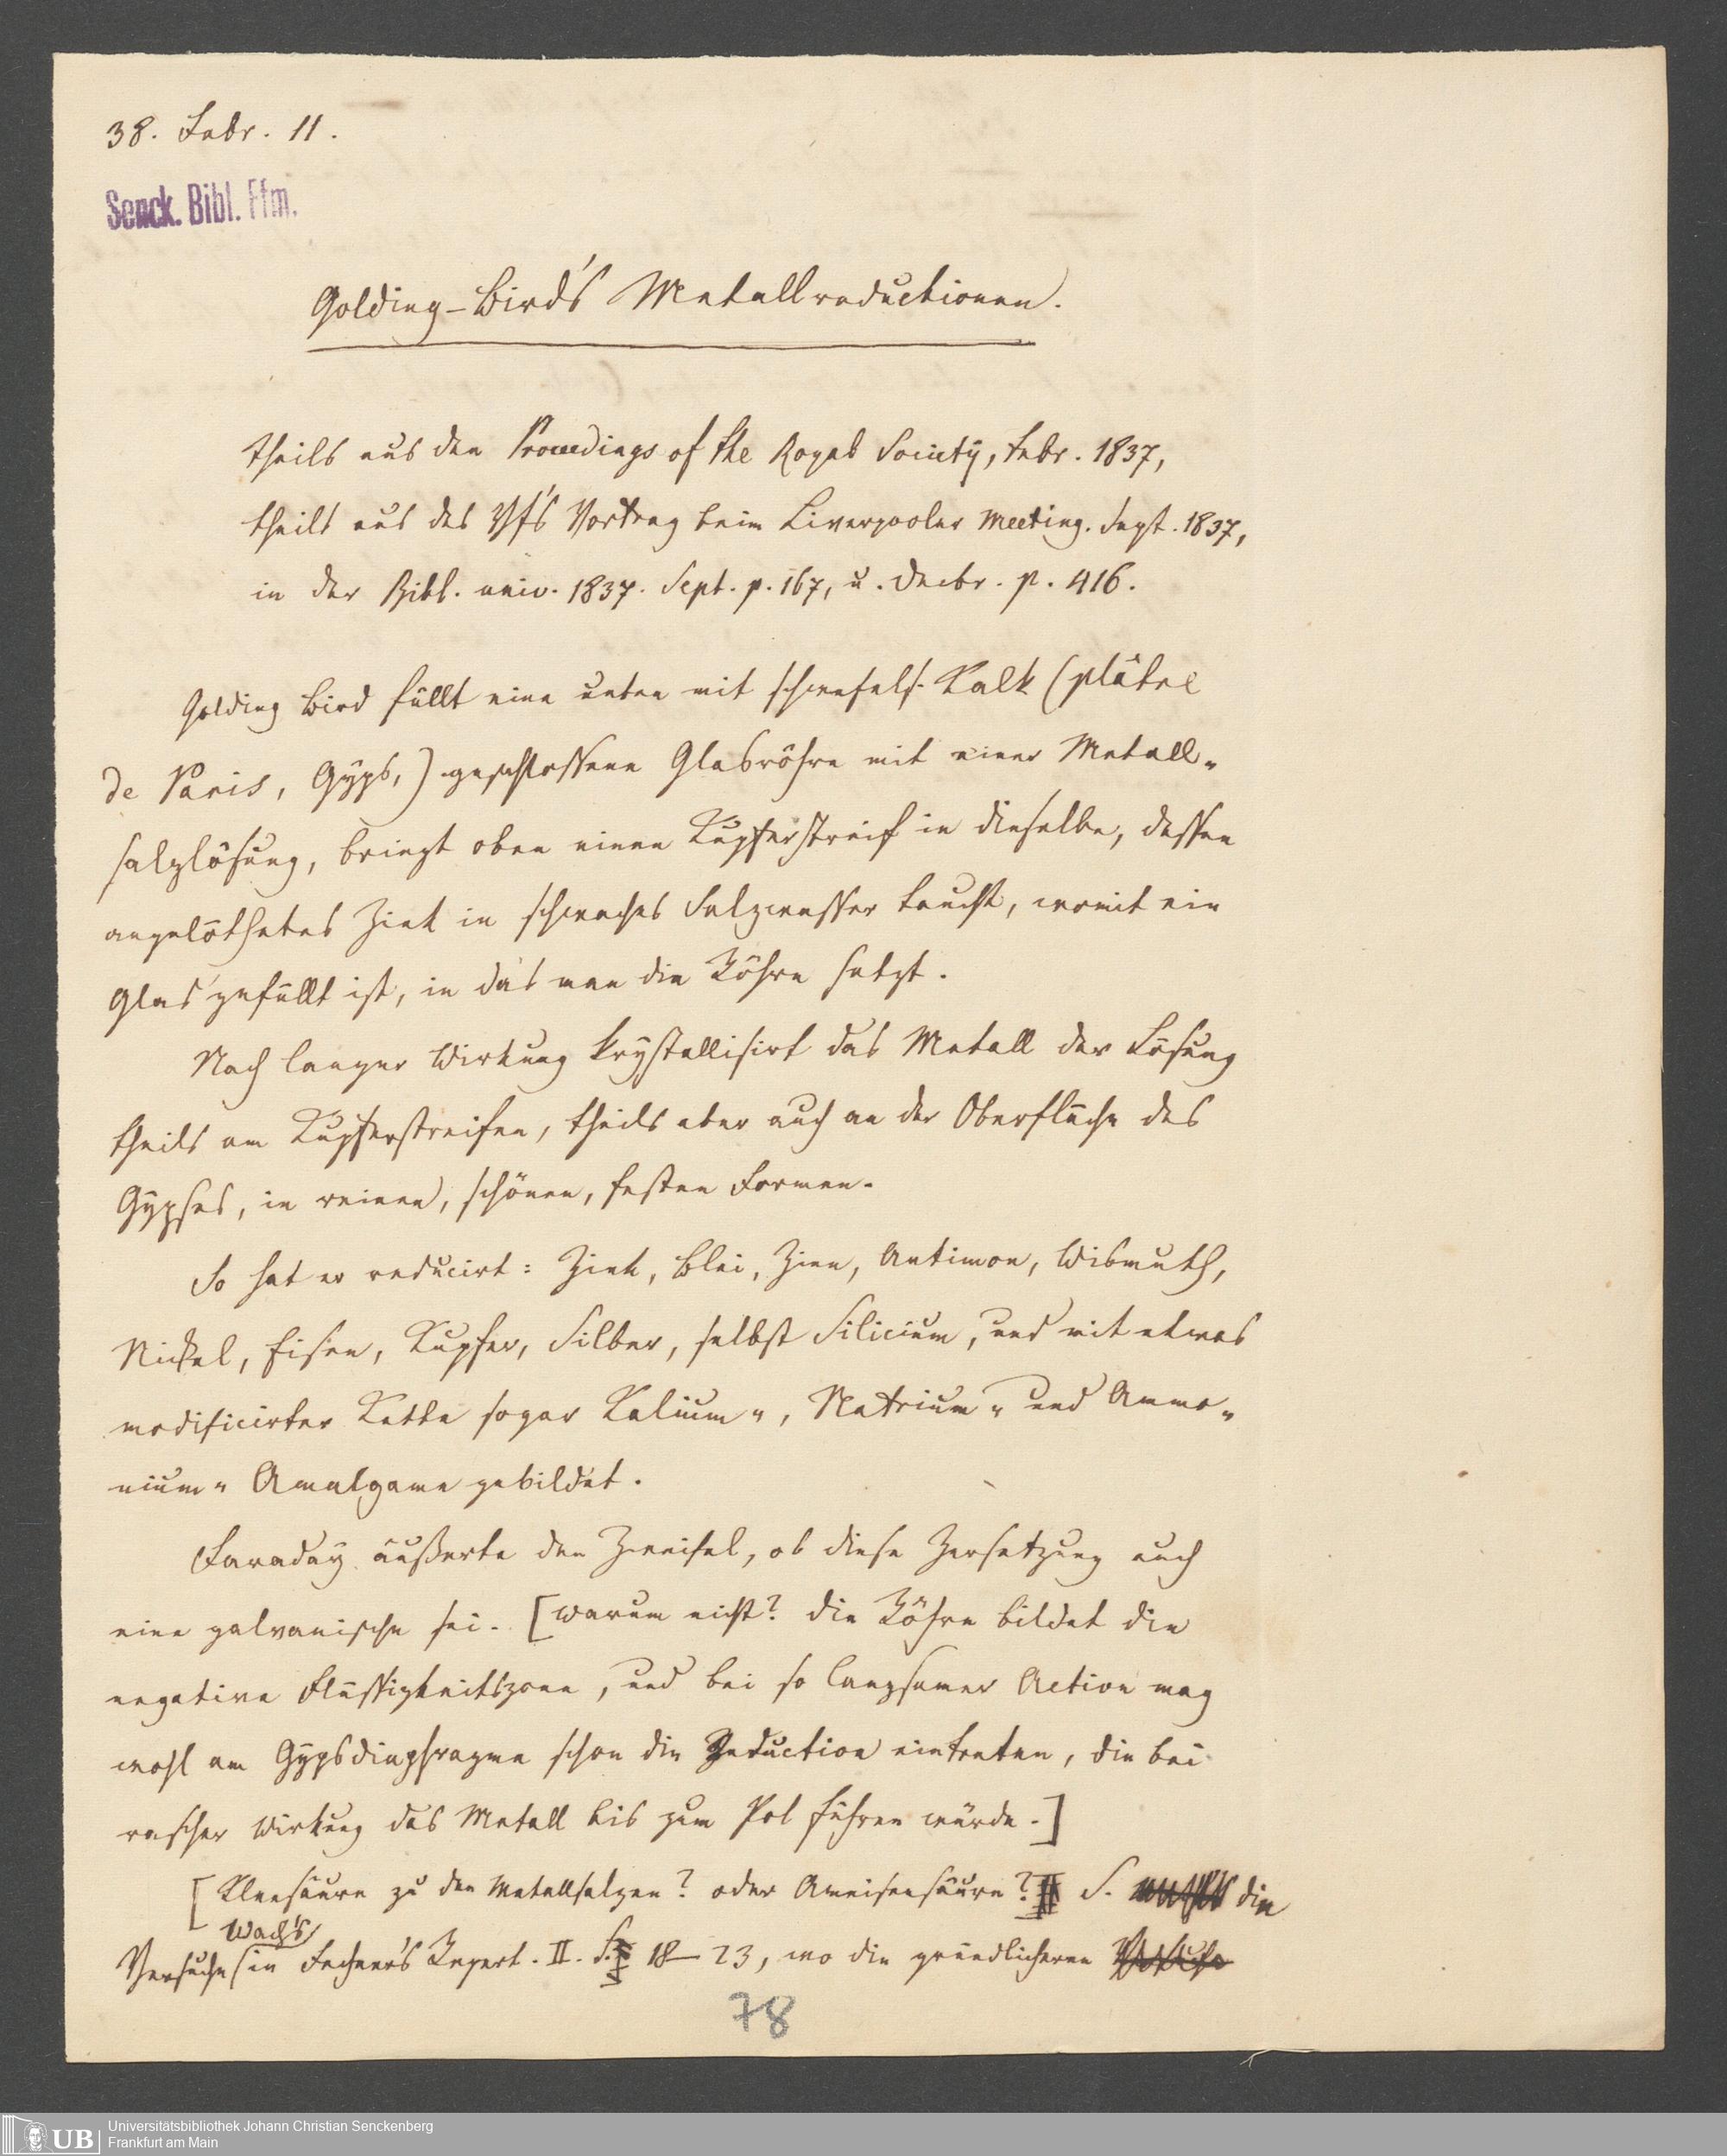 38. Febr. 11.
Senck. Bibl. Ffm.
Golding-Bird's Metallreductionen.
theils aus den Proceedings of the Royal Society, Febr. 1837,
theils aus des Vf's Vortrag beim Liverpooler Meeting. Sept. 1837,
in der Bibl. univ. 1837. Sept. p. 167, u. Decbr. p. 416.
Golding Bird füllt eine unten mit schwefels. Kalk (plâtre
de Paris, Gyps,) geschlossene Glasröhre mit einer Metall-
salzlösung, bringt oben einen Kupferstreif in dieselbe, dessen
angelöthetes Zink in schwaches Salzwasser taucht, womit ein
Glas gefüllt ist, in das man die Röhre setzt.
Nach langer Wirkung krystallisirt das Metall der Lösung
theils am Kupferstreifen, theils aber auch an der Oberfläche des
Gypses, in reinen, schönen, festen Formen.
So hat er reducirt: Zink, Blei, Zinn, Antimon, Wismuth,
Nickel, Eisen, Kupfer, Silber, selbst Silicium, und mit etwas
modificirter Kette sogar Kalium-, Natrium- und Ammo-
nium-Amalgame gebildet.
Faraday äußerte den Zweifel, ob diese Zersetzung auch
eine galvanische sei. [Warum nicht? die Röhre bildet die
negative Flüssigkeitszone, und bei so langsamer Action mag
wohl am Gypsdiaphragma schon die Reduction eintreten, die bei
rascher Wirkung das Metall bis zum Pol führen würde.]
[Kleesäure zu den Metallsalzen? oder Ameisensäure? S. die
Wach's
Versuche in Fechner's Repert. II. S. 18–23, wo die gründlicheren
78
Universitätsbibliothek Johann Christian Senckenberg
Frankfurt am Main
UB